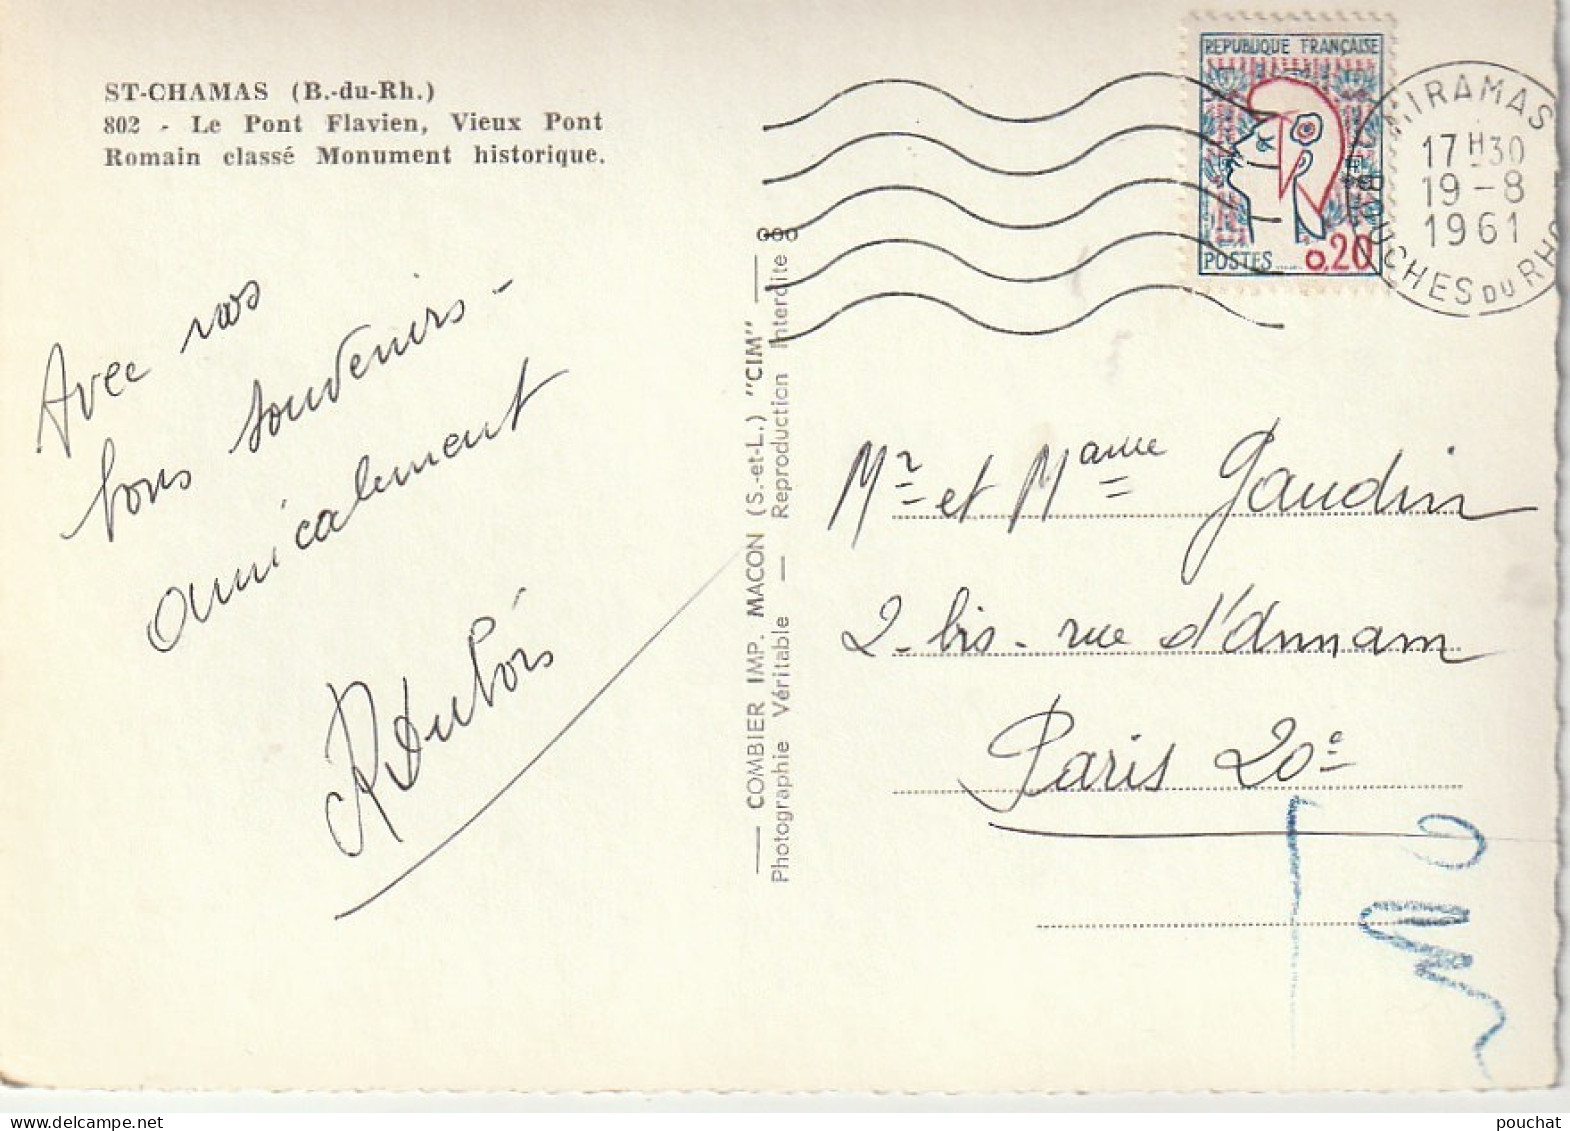 ST-CHAMAS (B.-du-Rh.)
802 - Le Pont Flavien, Vieux Pont
Romain classé Monument historique.
Avec nos
bons souvenirs -
amicalement
R Dubois
COMBIER IMP. MACON (S.-et-L.) "CIM"
Photographie Véritable — Reproduction Interdite
REPUBLIQUE FRANÇAISE
POSTES
0,20
MIRAMAS
17H30
19-8
1961
BOUCHES DU RHONE
Mr et Mame Gaudin
2 bis - rue d'Annam
Paris 20e
pouchat